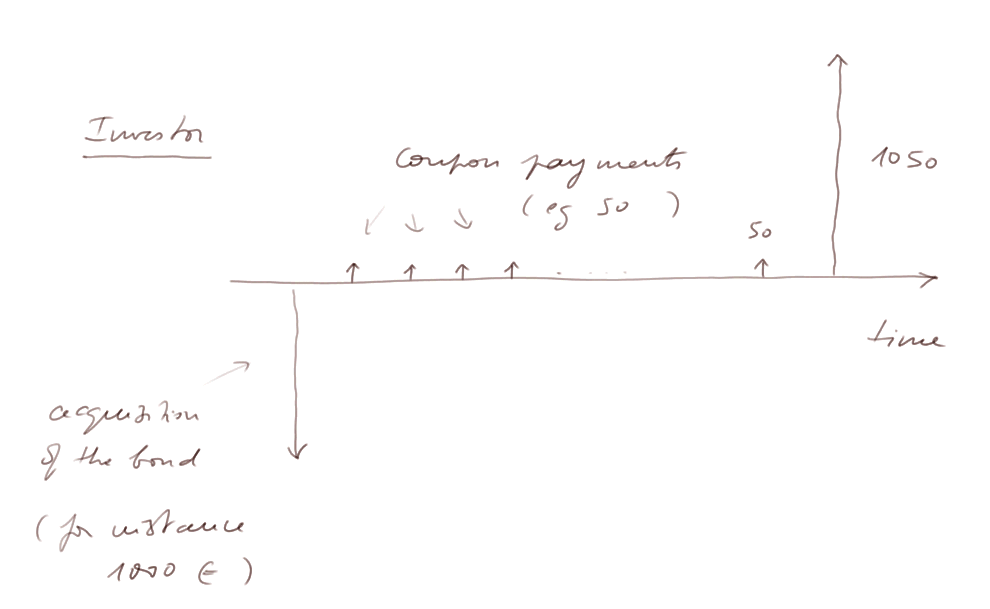 Investor
Coupon payments
(eg 50 )
50
1050
time
acquisition
of the bond
(for instance
1000 € )